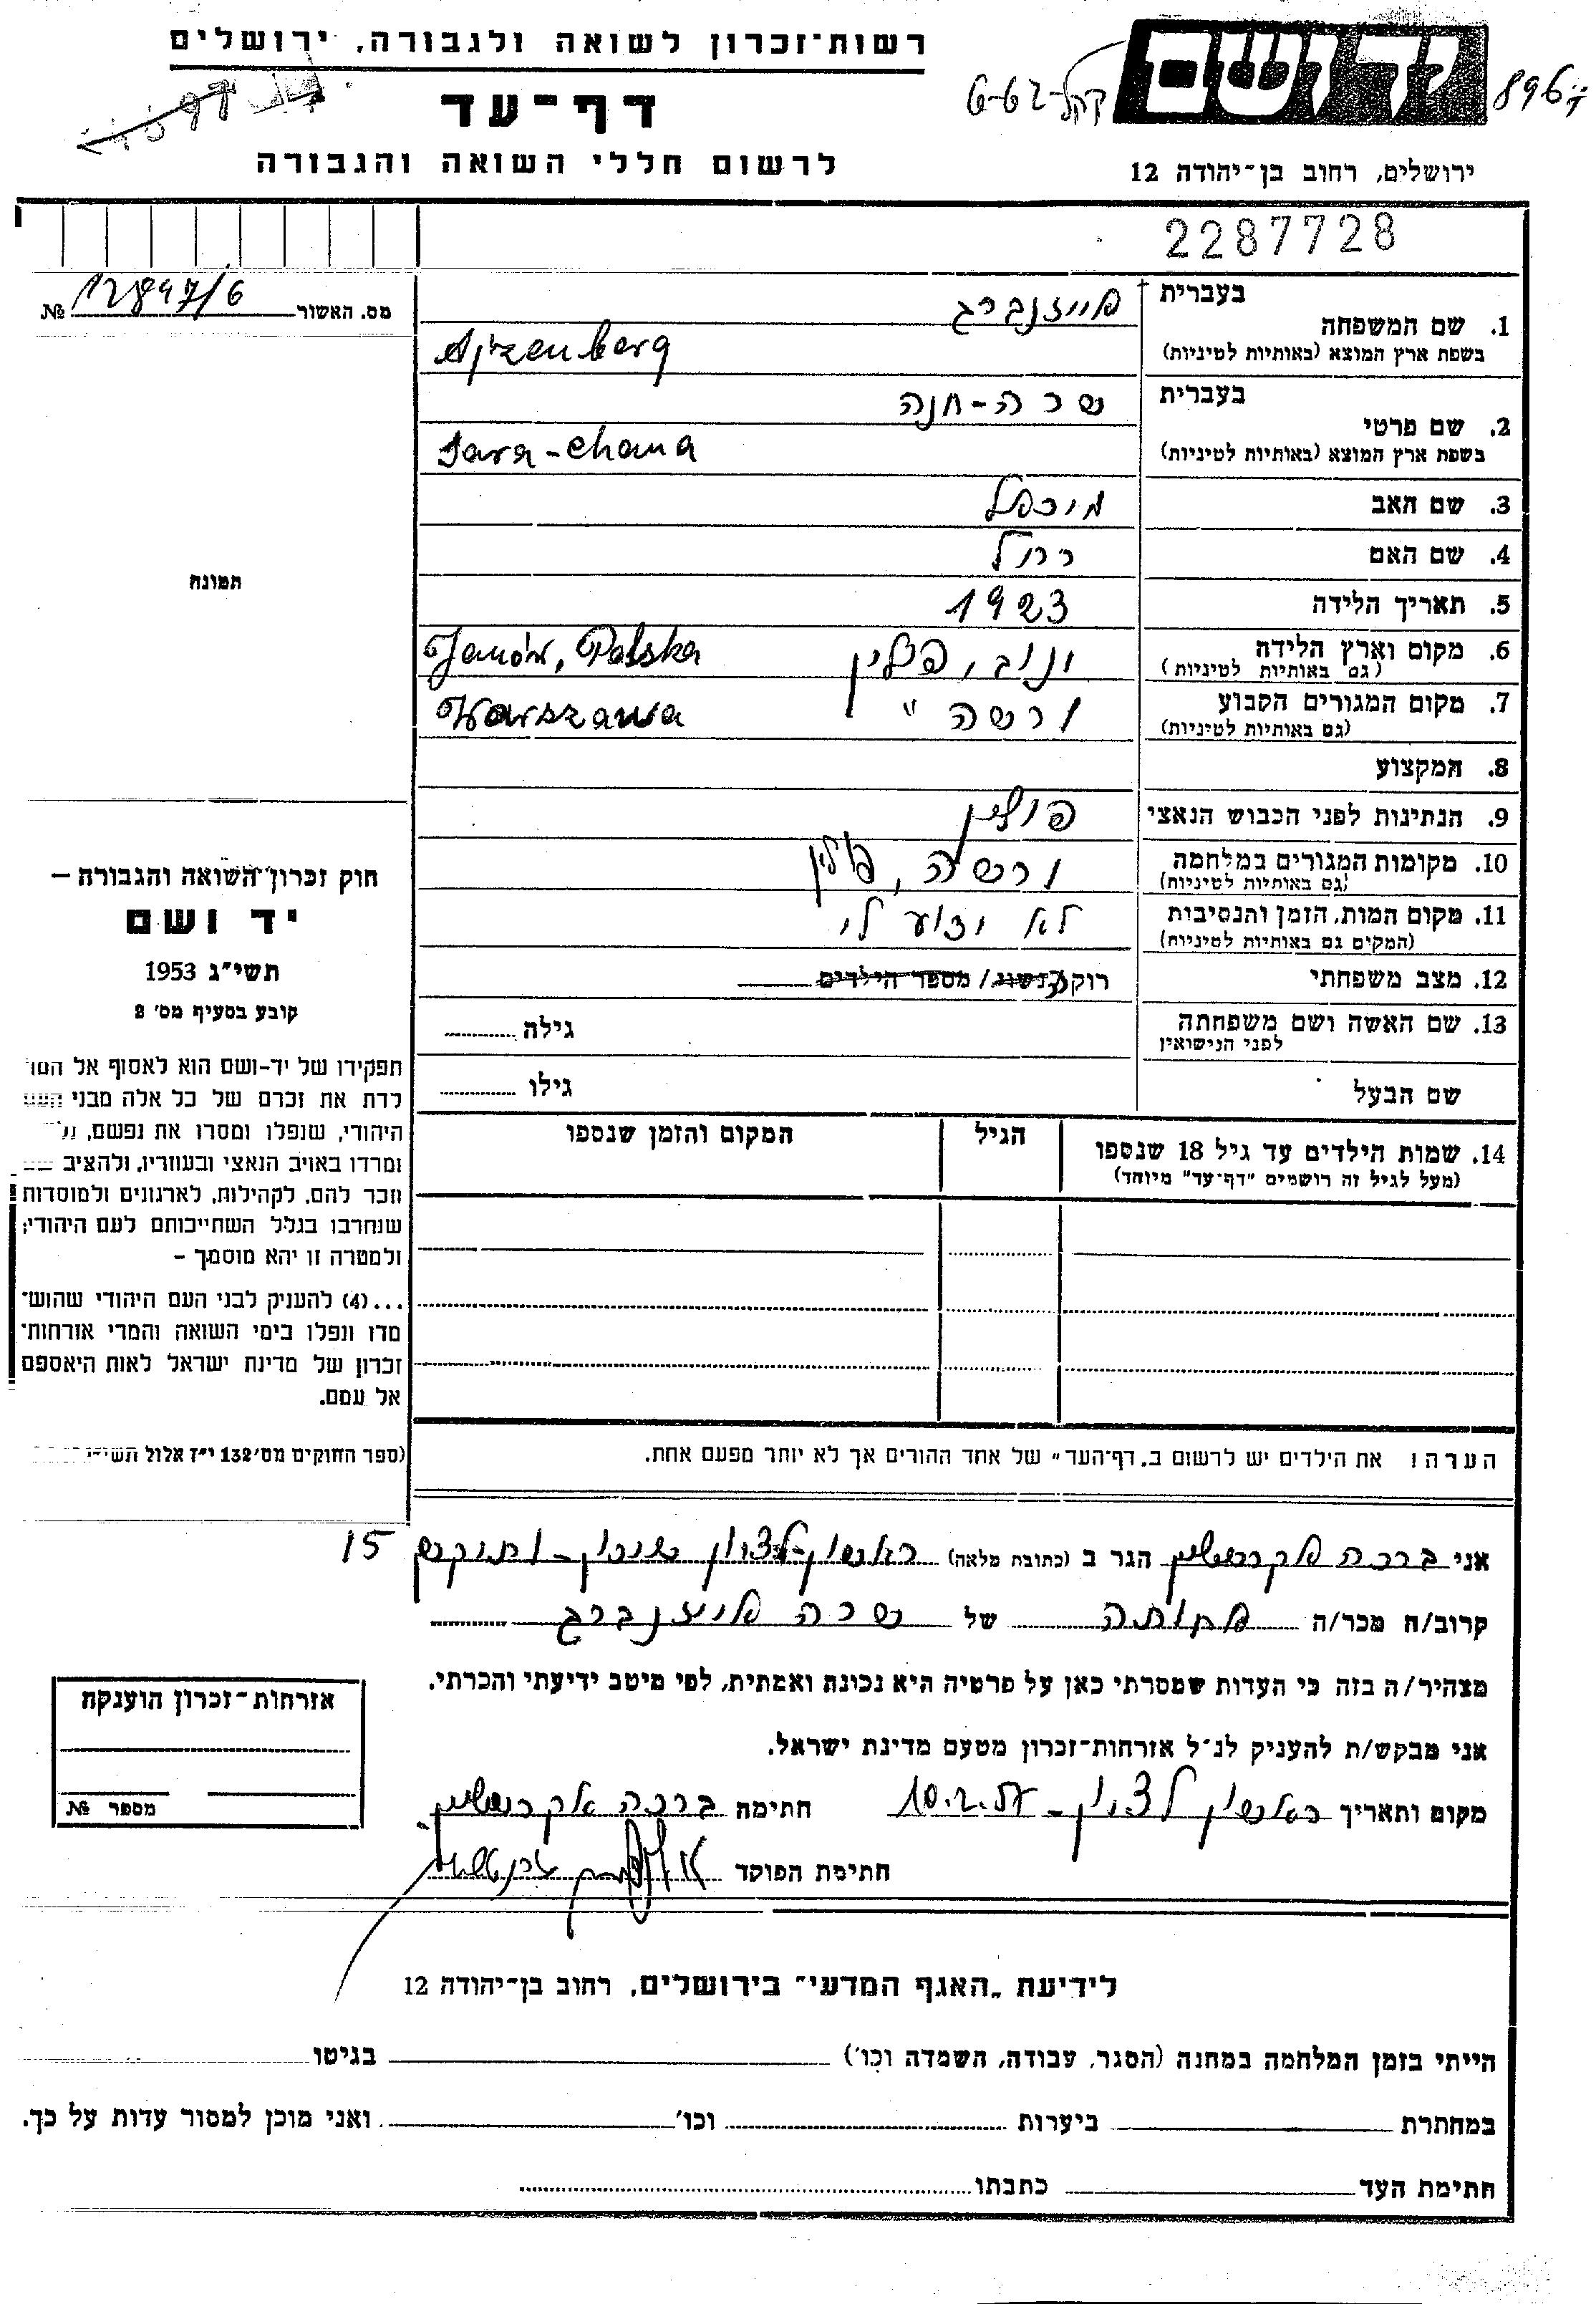 רשות־זכרון לשואה ולגבורה, ירושלים
דף־עד
לרשום חללי השואה והגבורה
ידושם
896
קהל 6-62
ירושלים, רחוב בן־יהודה 12
2287728
מס. האשור 12897/6 №
1. שם המשפחה בעברית אייזנברג
בשפת ארץ המוצא (באותיות לטיניות) Ajzenberg
2. שם פרטי בעברית שרה-חנה
בשפת ארץ המוצא (באותיות לטיניות) Sara-Chana
3. שם האב מיכאל
4. שם האם רחל
5. תאריך הלידה 1923
6. מקום וארץ הלידה ינוב, פולין Janów, Polska
(גם באותיות לטיניות)
7. מקום המגורים הקבוע ורשה " Warszawa
(גם באותיות לטיניות)
8. המקצוע
9. הנתינות לפני הכבוש הנאצי פולין
10. מקומות המגורים במלחמה ורשה, פולין
(גם באותיות לטיניות)
11. מקום המות, הזמן והנסיבות לא ידוע לי
(המקים גם באותיות לטיניות)
12. מצב משפחתי רוקה/נשוי/ מספר הילדים
13. שם האשה ושם משפחתה גילה
לפני הנישואין
שם הבעל גילו
14. שמות הילדים עד גיל 18 שנספו הגיל המקום והזמן שנספו
(מעל לגיל זה רושמים "דף־עד" מיוחד)
תמונה
חוק זכרון השואה והגבורה –
יד ושם
תשי"ג 1953
קובע בסעיף מס' 2
תפקידו של יד-ושם הוא לאסוף אל המו
לדת את זכרם של כל אלה מבני העם
היהודי, שנפלו ומסרו את נפשם,
ומרדו באויב הנאצי ובעוזריו, ולהציב
וזכר להם, לקהילות, לארגונים ולמוסדות
שנחרבו בגלל השתייכותם לעם היהודי;
ולמטרה זו יהא מוסמך –
...(4) להעניק לבני העם היהודי שהוש־
מדו ונפלו בימי השואה והמרי אזרחות־
זכרון של מדינת ישראל לאות היאספם
אל עמם.
(ספר החוקים מס' 132 י"ז אלול תשי"
הערה! את הילדים יש לרשום ב„דף־העד" של אחד ההורים אך לא יותר מפעם אחת.
אני ברכה הגר ב (כתובת מלאה) ראשון-לציון שיכון-ותיקים 15
קרוב/ה מכר/ה אחותה של שרה אייזנברג
מצהיר/ה בזה כי העדות שמסרתי כאן על פרטיה היא נכונה ואמתית, לפי מיטב ידיעתי והכרתי.
אני מבקש/ת להעניק לנ"ל אזרחות־זכרון מטעם מדינת ישראל.
מקום ותאריך ראשון לציון - 10.2.57 חתימה ברכה
חתימת הפוקד
אזרחות־זכרון הוענקה
מספר №
לידיעת „האגף המדעי" בירושלים, רחוב בן־יהודה 12
הייתי בזמן המלחמה במחנה (הסגר, עבודה, השמדה וכו') בגיטו
במחתרת ביערות וכו' ואני מוכן למסור עדות על כך.
חתימת העד כתבתו